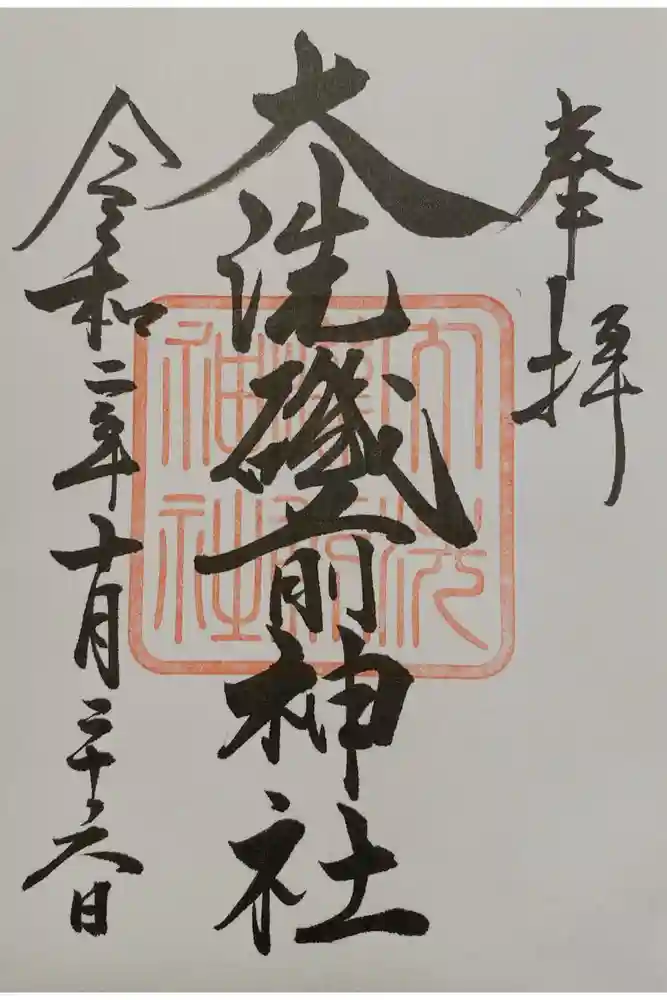 奉拝
大洗磯前神社
令和二年十月二十六日
大洗
磯前
神社